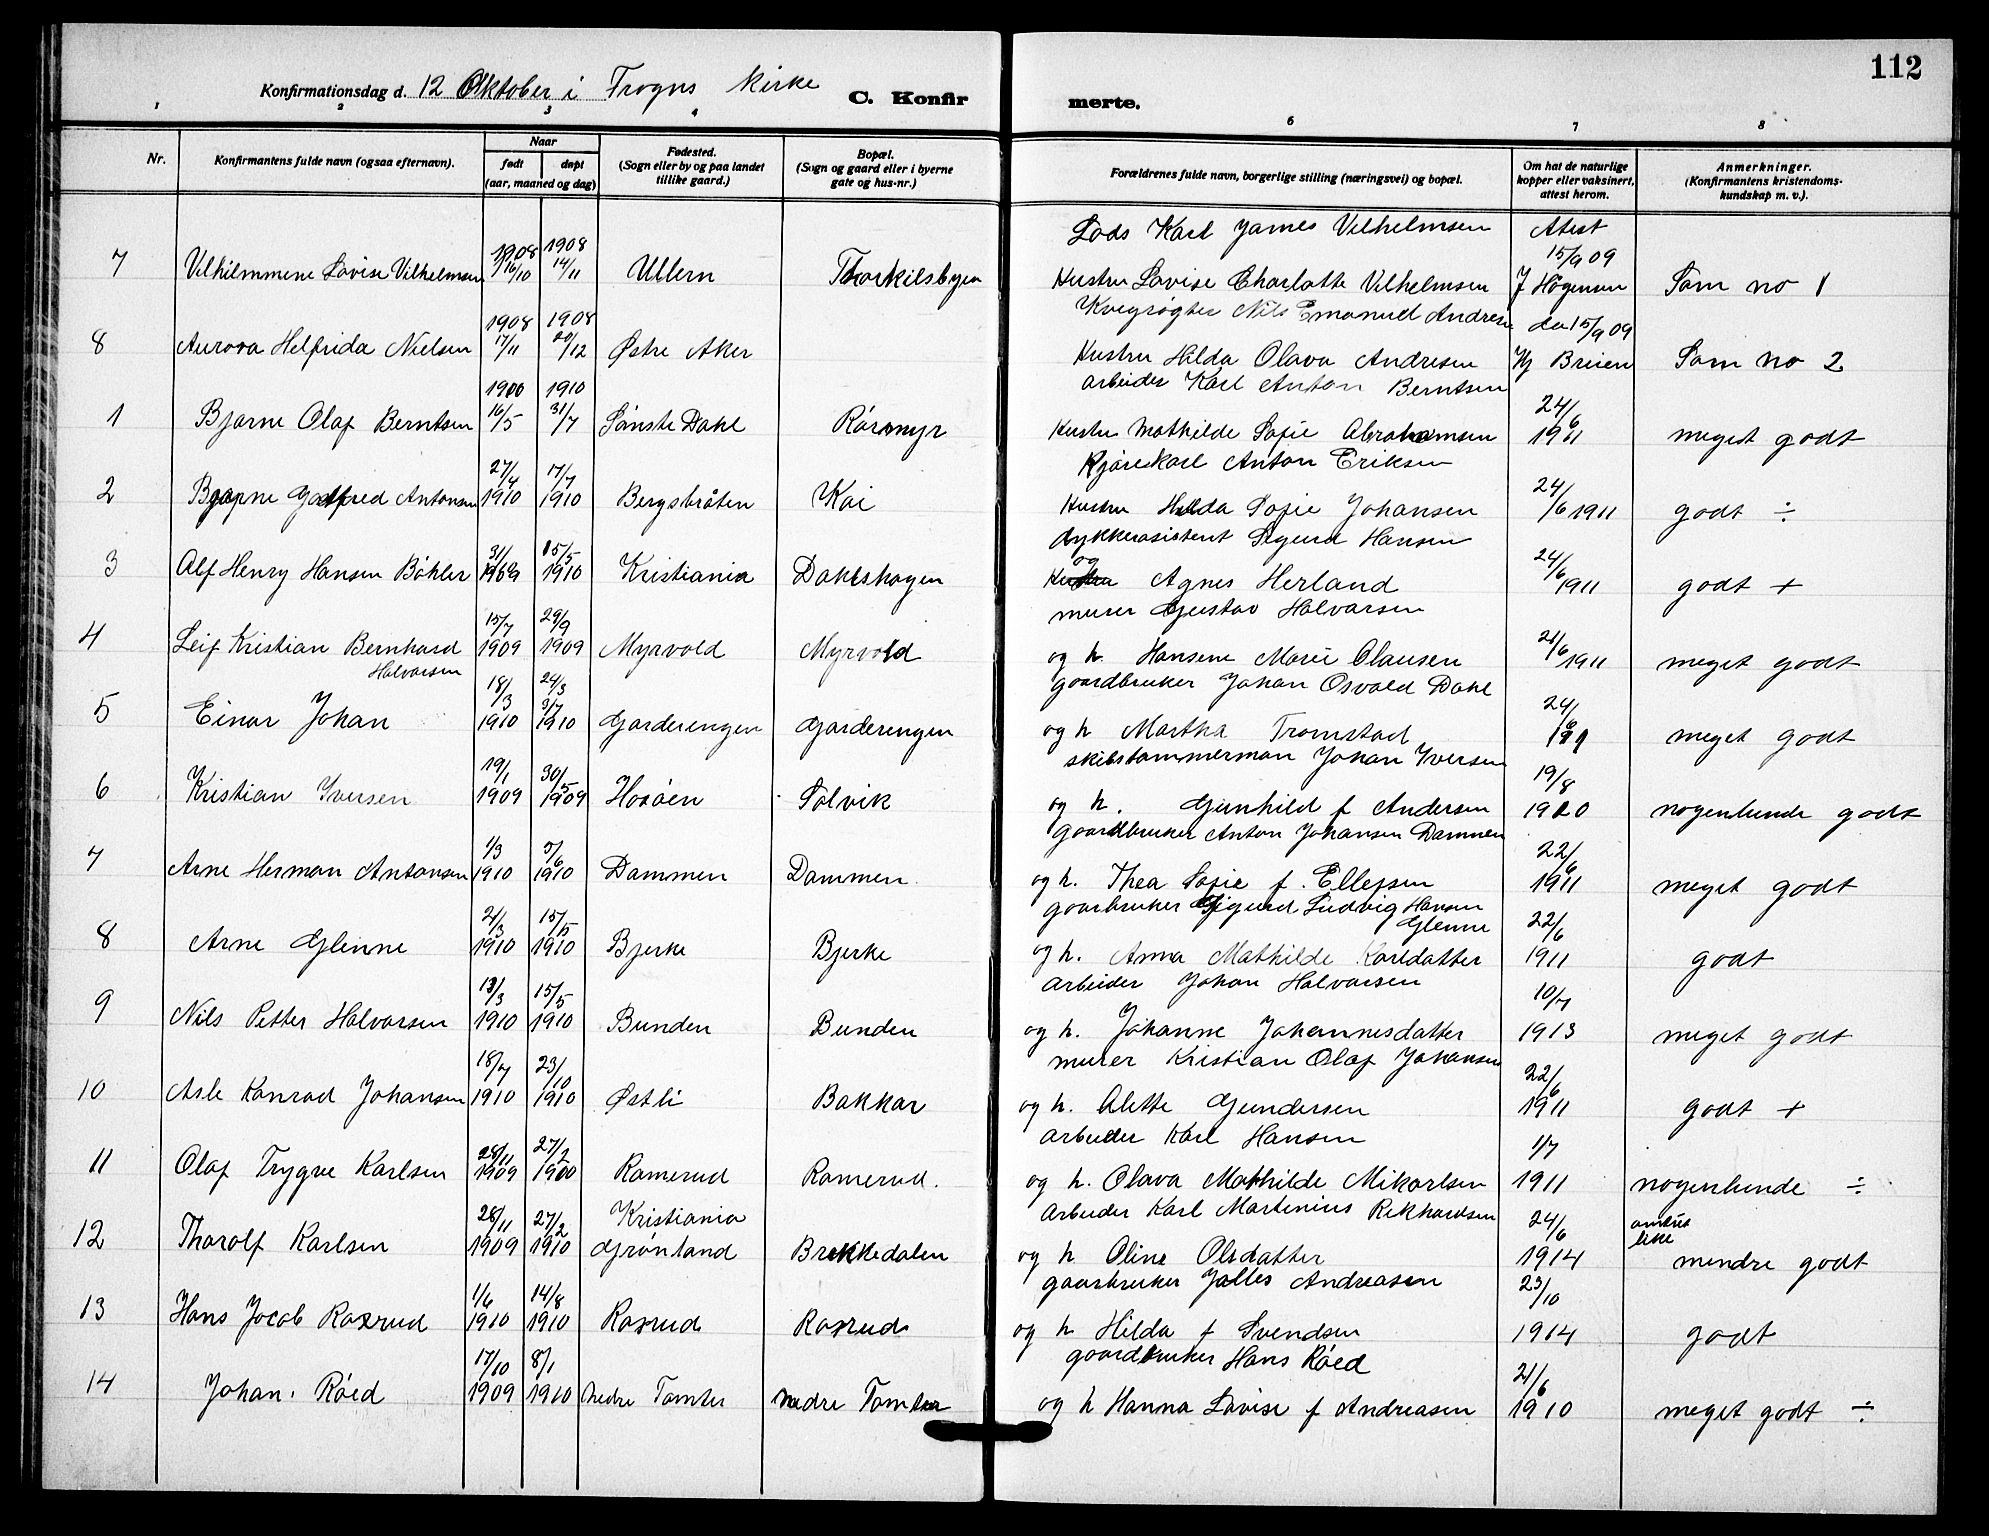 112
Konfirmationsdag d. 12 Oktober i Trogns Kirke
C. Konfir merte.
1 2 3 4 6 7 8
Nr.
Konfirmantens fulde navn (ogsaa efternavn).
Naar
født døpt
(aar, maaned og dag)
Fødested.
(Sogn eller by og paa landet
tillike gaard.)
Bopæl.
(Sogn og gaard eller i byerne
gate og hus-nr.)
Forældrenes fulde navn, borgerlige stilling (næringsvei) og bopæl.
Om hat de naturlige
kopper eller vaksinert,
attest herom.
Anmerkninger.
(Konfirmantens kristendoms-
kundskap m. v.).
Lods Karl James Vilhelmsen Atest
1908 1908 15/9 09
7 Vilhilmmene Lovise Vilhelmsen 16/10 14/11 Ullern Thorkilsbyen Hustru Lovise Charlotte Vilhelmsen J Högensen Som no 1
1908 1908 Kvegrøgter Nils Emanuel Andresen da 15/9 09
8 Aurora Helfrida Nielsen 17/11 20/12 Østre Aker Hustru Hilda Olava Andresen Hj Breien Som no 2
1900 1910 arbeider Karl Anton Berntsen
1 Bjarne Olaf Berntsen 16/5 31/7 Sönste Dahl Rörmyr Hustru Mathilde Sofie Abrahamsen 24/6 1911 meget godt
27/4 17/7 Kjörekarl Anton Eriksen
2 Bjarne Godtfred Antonsen 1910 1910 Bergsbråten Koi Hustru Hilda Sofie Johansen 24/6 1911 godt ÷
31/ 15/5 dykkerasistent Sigurd Hansen
3 Alf Henry Hansen Böhler 1909 1910 Kristiania Dahlshagen og Agnes Herland 24/6 1911 godt +
15/7 29/9 murer Gustav Halvorsen
4 Leif Kristian Bernhard Halvorsen 1909 1909 Myrvold Myrvold og h. Hansene Marie Olausen 21/6 1911 meget godt
18/3 24/3 3/7 gaardbruker Johan Osvald Dahl
5 Einar Johan 1910 1910 Garderengen Garderengen og h Martha Tromstad 24/6 meget godt
19/1 30/5 skibstømmerman Johan Iversen
6 Kristian Iversen 1909 1909 Hosöen Solvik og h. Gunhild f Andersen 19/8 1920 nogenlunde godt
1/3 5/6 Gaardbruker Anton Johansen Dammen
7 Arne Herman Antonsen 1910 1910 Dammen Dammen. og h. Thea Sofie f. Ellefsen 22/6 1911 meget godt
21/3 15/5 gaarbruker Sigurd Ludvig Hansen Glenne
8 Arne Glenne 1910 1910 Bjerke Bjerke og h. Anna Mathilde Karldatter 22/6 1911 godt
13/3 15/5 arbeider Johan Halvorsen
9 Nils Petter Halvorsen 1910 1910 Bunden Bunden og h. Johanne Johannesdatter 10/7 1913 meget godt
18/7 23/10 murer Kristian Olaf Johansen
10 Asle Konrad Johansen 1910 1910 Østli Bakkar og h. Alette Gundersen 22/6 1911 godt +
28/11 27/2 arbeider Karl Hansen
11 Olaf Trygve Karlsen 1909 1900 Ramerud Ramerud. og h. Olava Mathilde Mikarlsen 1/7 1911 nogenlunde ÷
28/11 27/2 Kristiania arbeider Karl Martinius Rikhardsen
12 Thorolf Karlsen 1909 1910 Grönland Brekkedalen og h Oline Olsdatter 24/6 1914 mendre godt
1/6 14/8 gaarbruker Jalles Andreasen
13 Hans Jacob Rosrud 1910 1910 Rosrud Rosrud og h Hilda f Svendsen 23/10 1914 godt
17/10 8/1 gaardbruker Hans Röed
14 Johan. Röed 1909 1910 Nedre Tomter nedre Tomter og h Hanna Lovise f Andreasen 21/6 1910 meget godt ÷